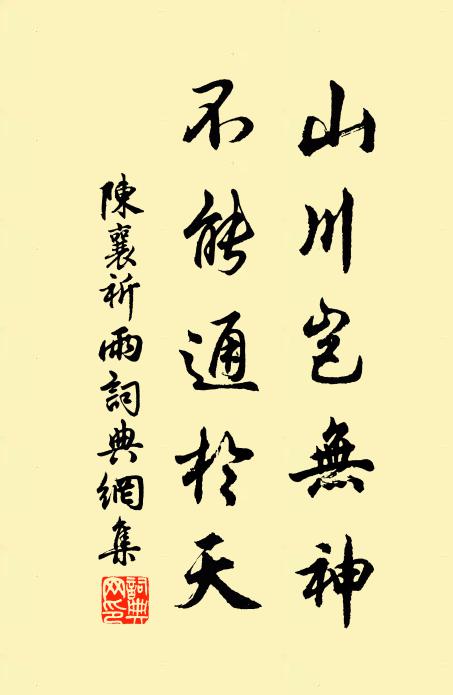 山川岂無神
不能通於天
陳襄祈雨詞典網集
詞典网印